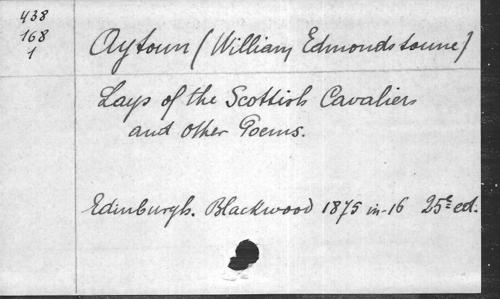 438
168
1
Aytoun (William Edmondstoune)
Lays of the Scottish Cavaliers
and other Poems.
Edinburgh. Blackwood 1875 in-16 25e ed.